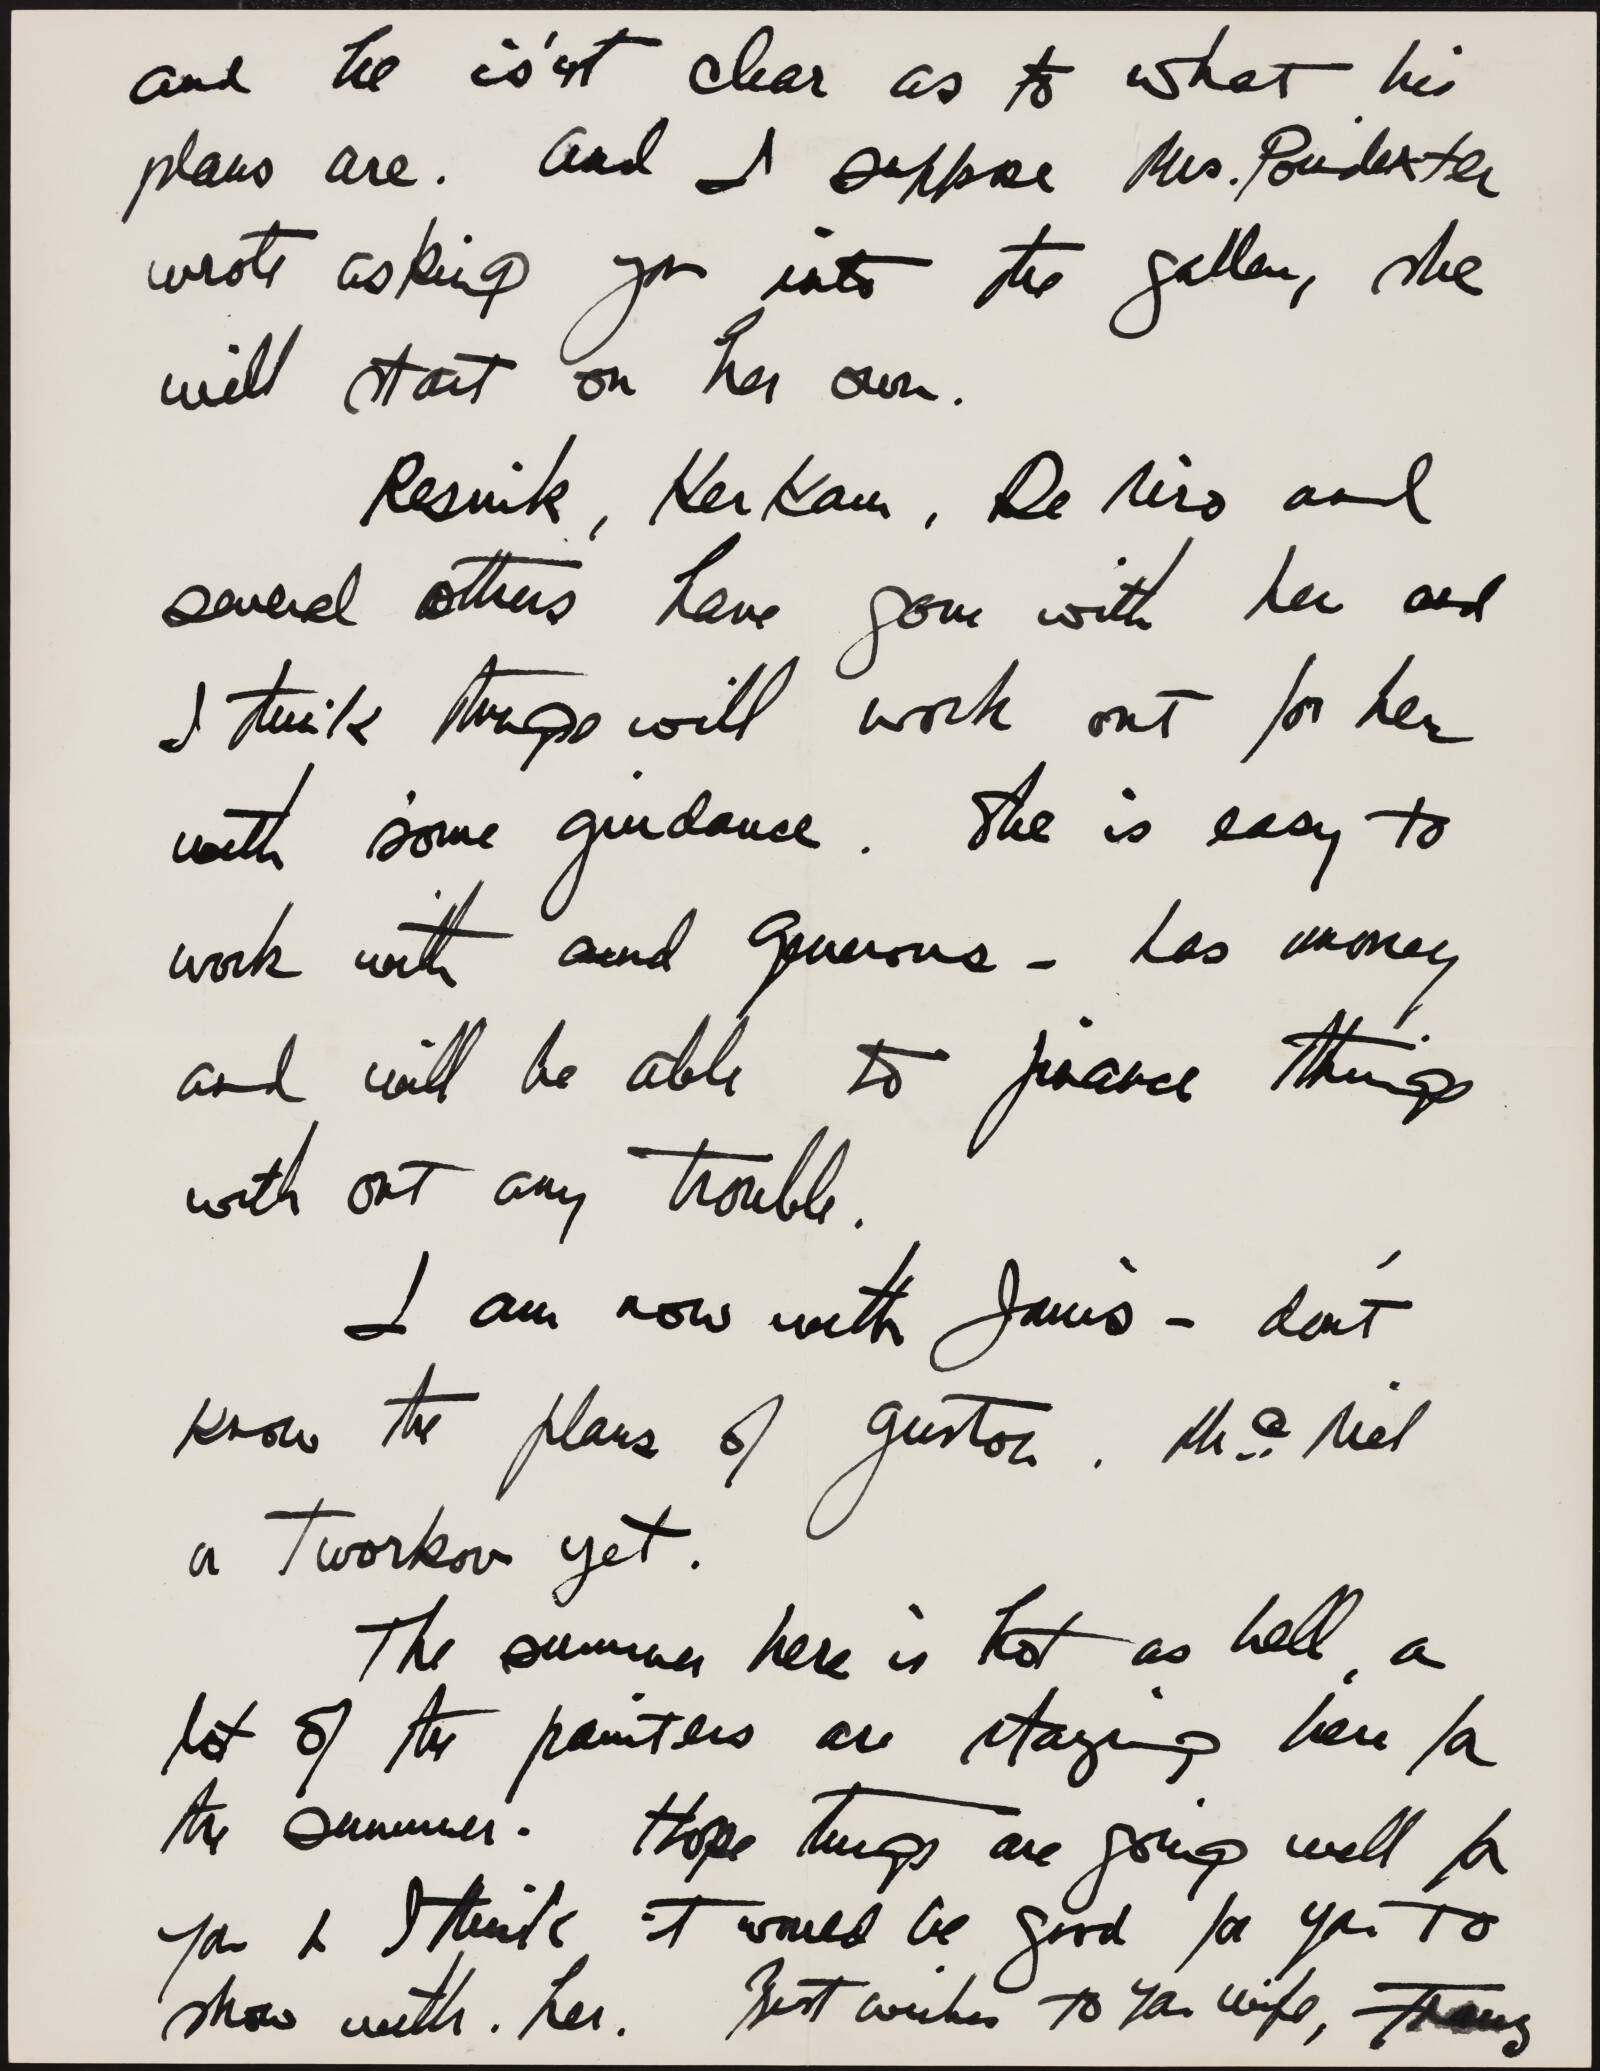 and he is'nt clear as to what his
plans are. And I suppose Mrs. Poindexter
wrote asking you into the gallery, she
will start on her own.
Resnik, Kerkam, De Niro and
several others have gone with her and
I think things will work out for her
with some guidance. She is easy to
work with and generous - has money
and will be able to finance things
with out any trouble.
I am now with Janis - don't
know the plans of Guston. Mc Neil
or Tworkov yet.
The summer here is hot as hell, a
lot of the painters are staying here for
the summer. Hope things are going well for
you & I think it would be good for you to
show with her. Best wishes to your wife, Franz